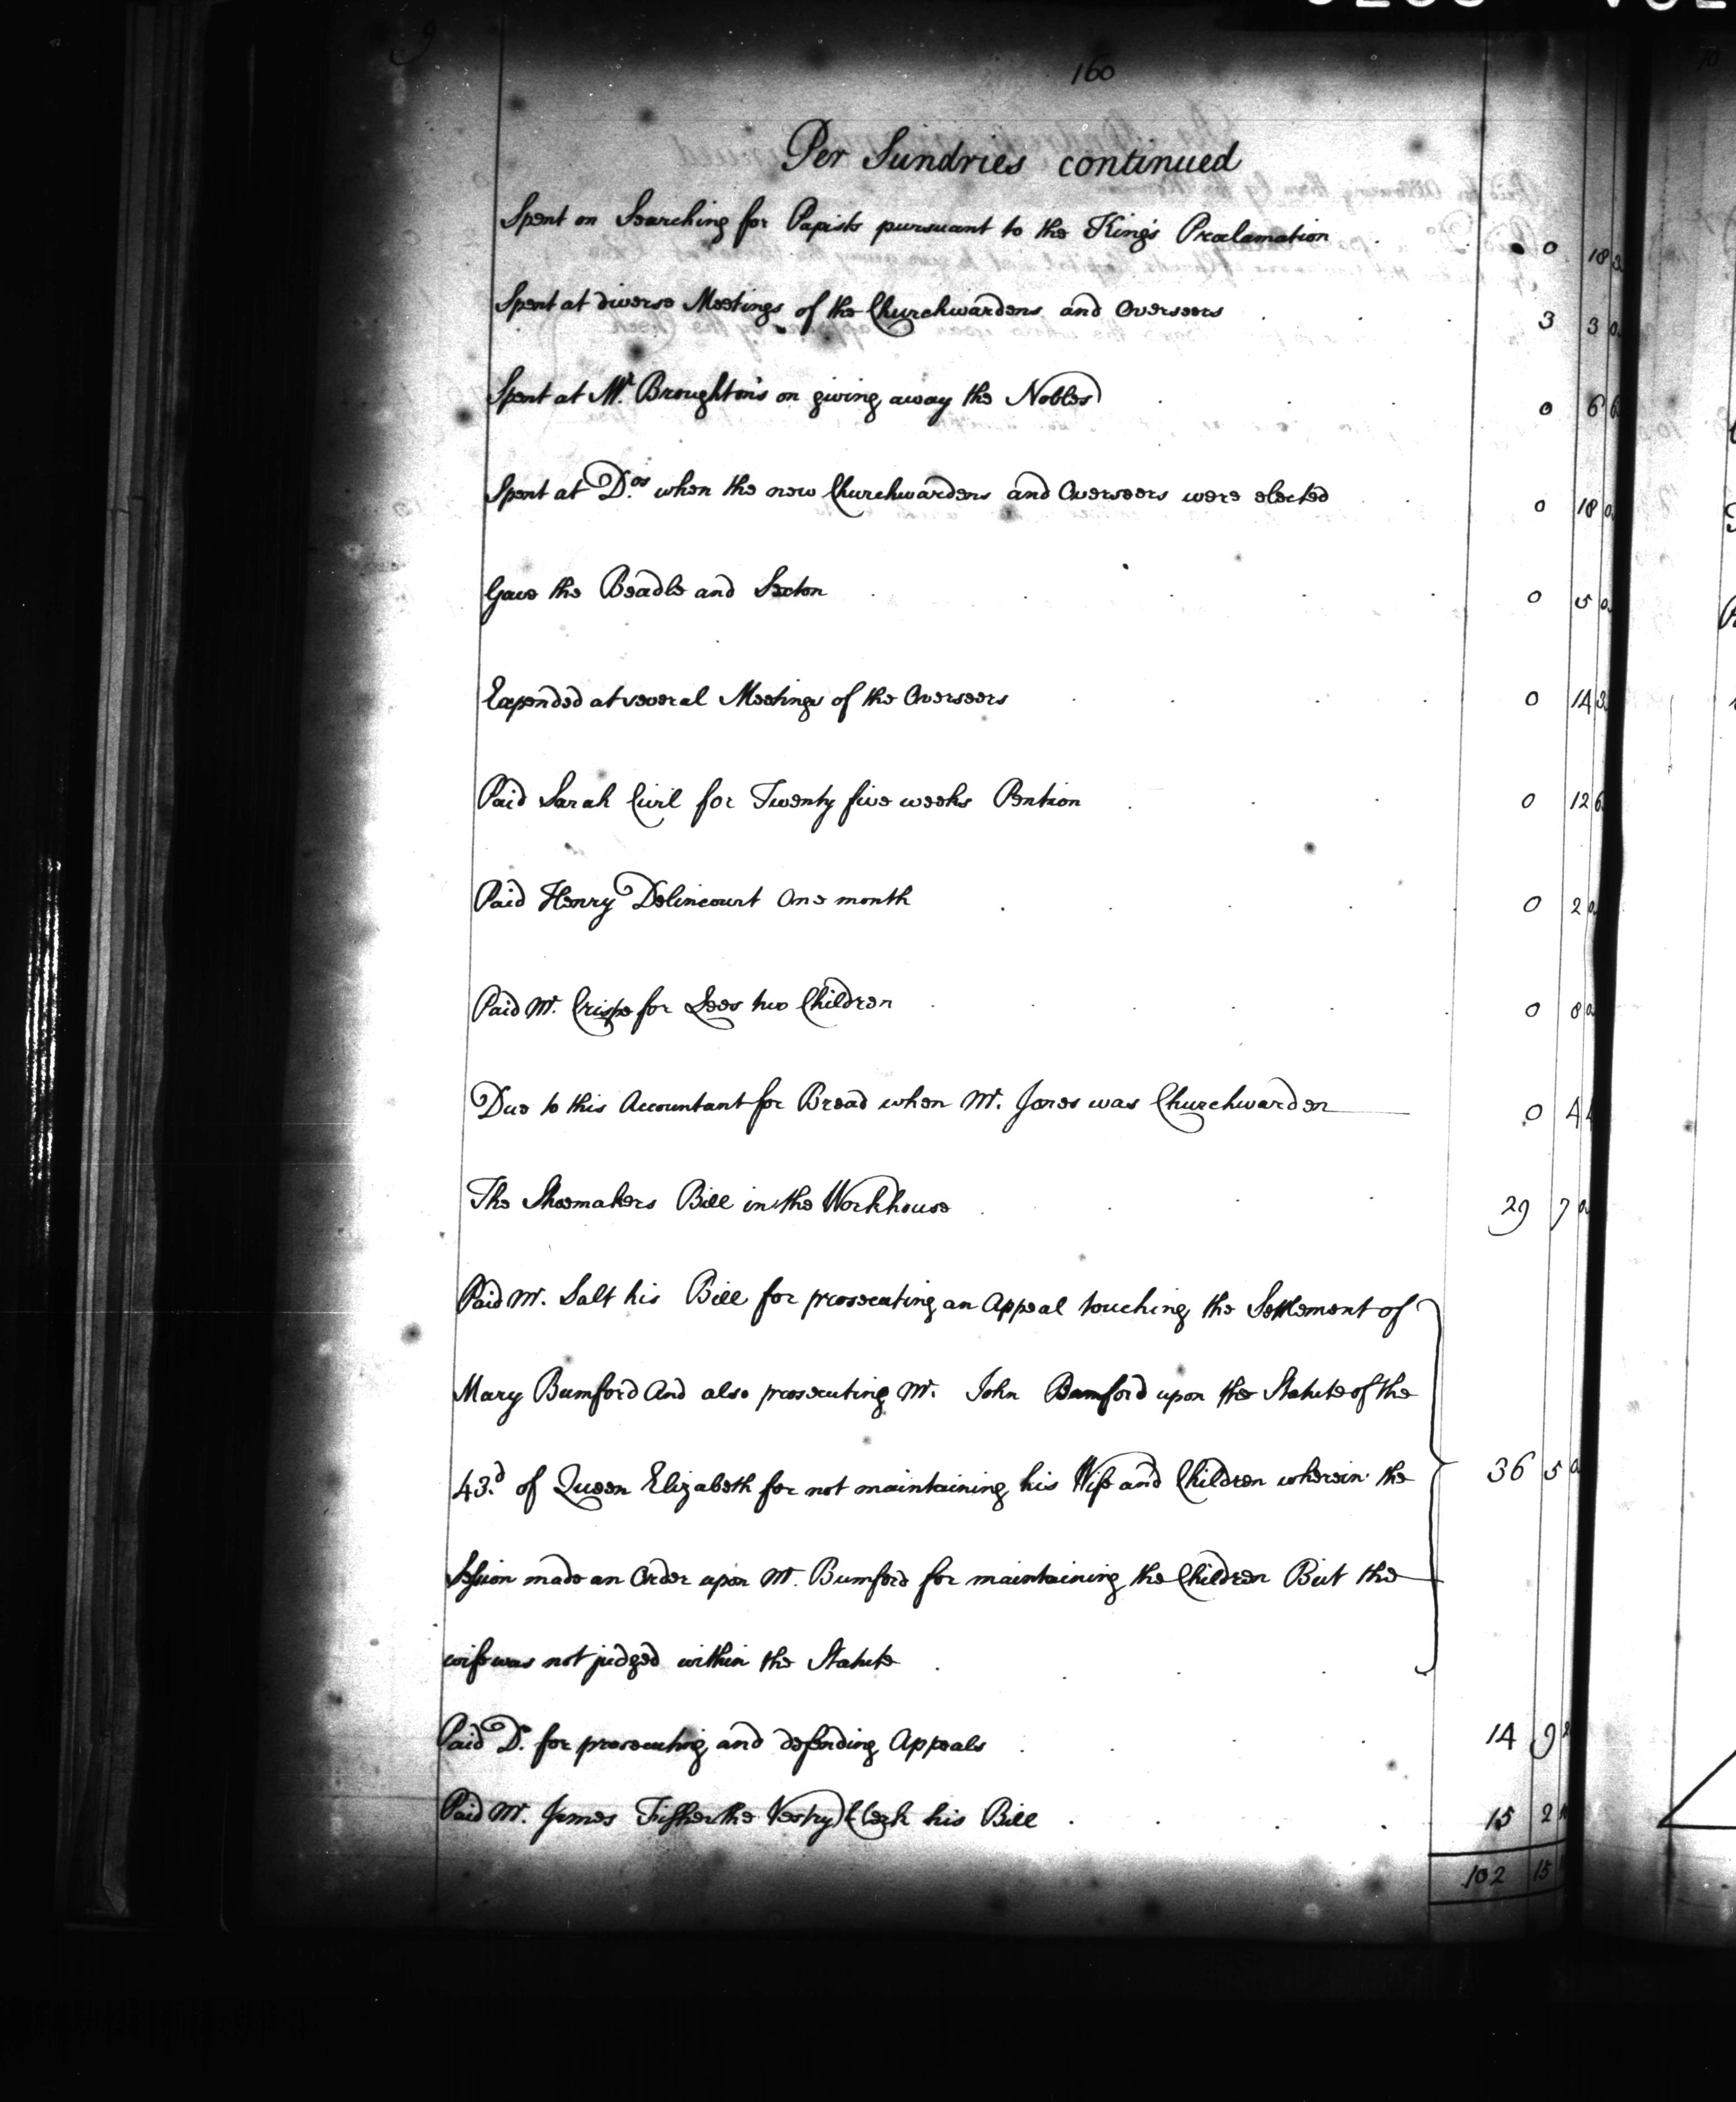 160
Per Sundries continued
Spent on Searching for Papists pursuant to the King's Proclamation 0 18 3
Spent at diverse Meetings of the Churchwardens and Overseers 3 3 0
Spent at Mr. Broughton's on giving away the Nobles 0 6 6
Spent at Dos. when the new Churchwardens and Overseers were elected 0 18 0
Gave the Beadle and Sexton 0 5 0
Expended at several Meetings of the Overseers 0 14 3
Paid Sarah Civil for Twenty five weeks Pention 0 12 6
Paid Henry Delincourt One month 0 2 0
Paid Mr. Crispe for Lees two Children 0 8 0
Due to this Accountant for Bread when Mr. Jones was Churchwarden 0 4
The Shoemakers Bill in the Workhouse 29 7 0
Paid Mr. Salt his Bill for prosecuting an Appeal touching the Settlement of
Mary Bumford And also prosecuting Mr. John Bumford upon the Statute of the
43d. of Queen Elizabeth for not maintaining his Wife and Children wherein the 36 5 0
Session made an Order upon Mr. Bumford for maintaining the Children But the
wife was not judged within the Statute
Paid Do. for prosecuting and defending Appeals 14 9
Paid Mr. James Fisher the Vestry Clerk his Bill 15 2
102 15